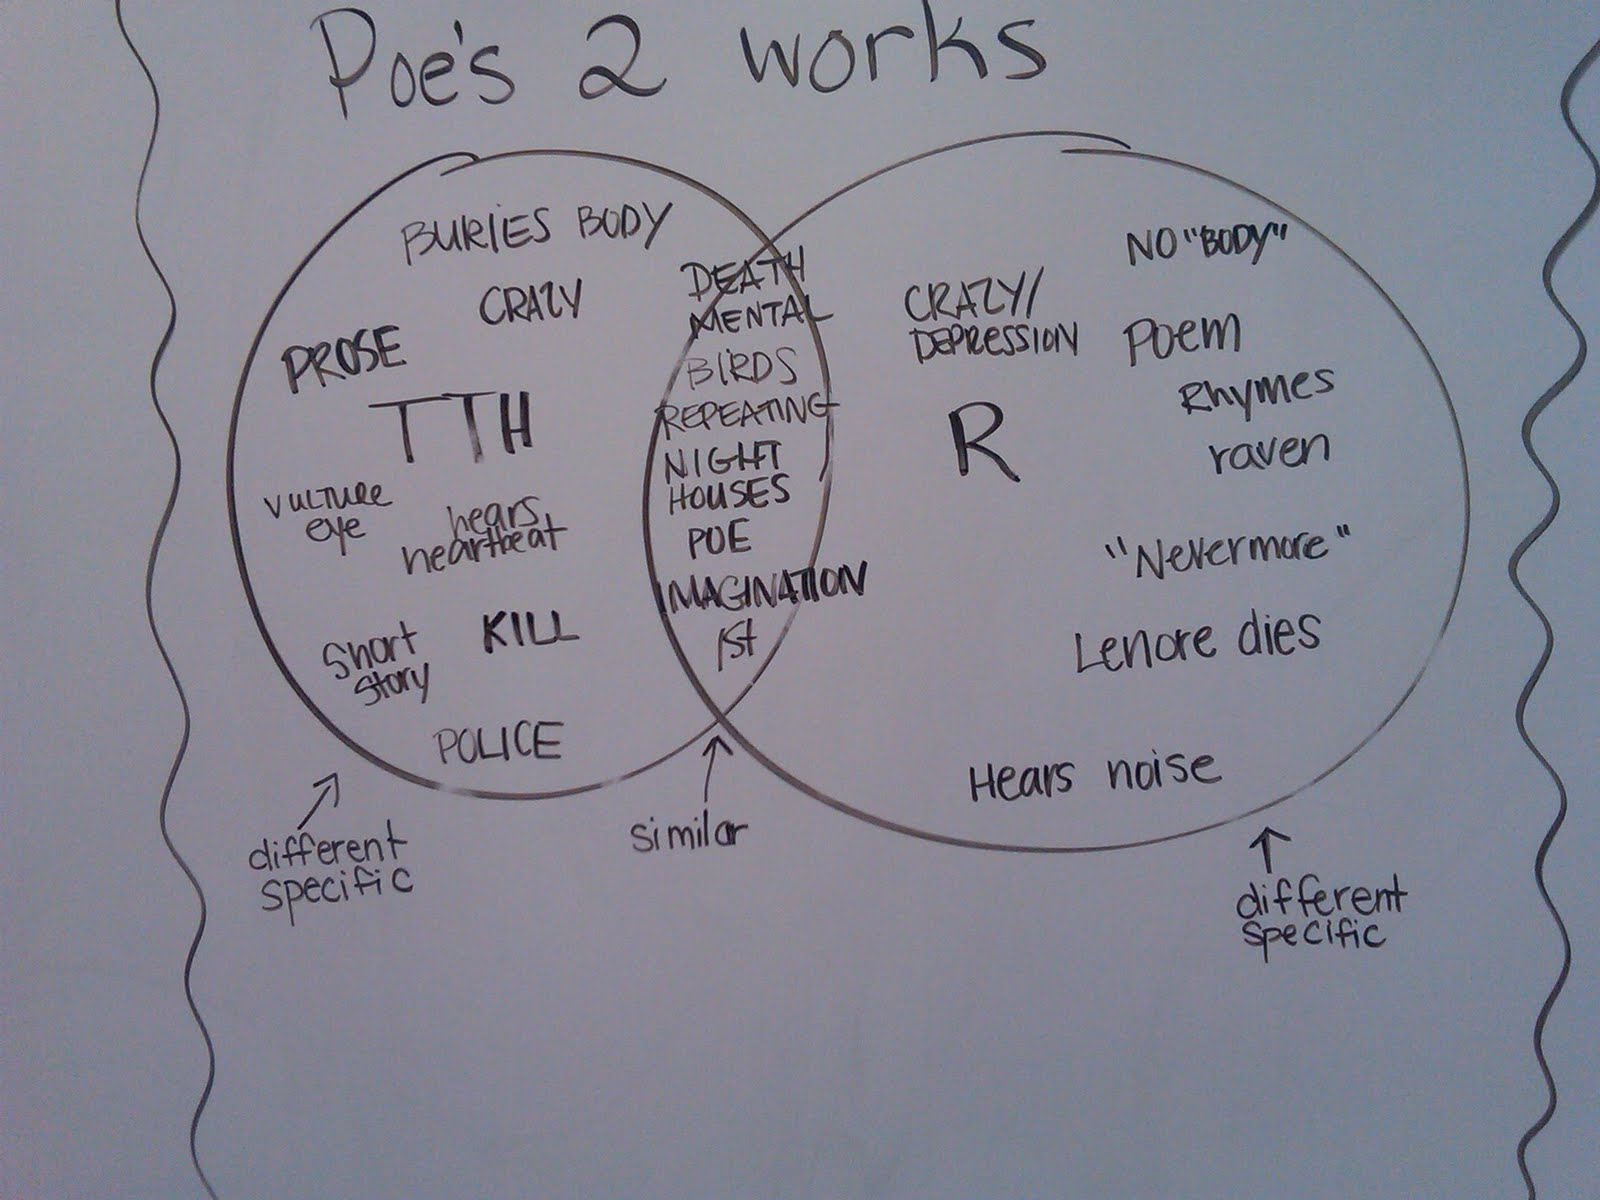 Poe's 2 works
BURIES BODY
CRAZY
PROSE
TTH
vulture
eye
hears
heartbeat
KILL
Short
story
POLICE
DEATH
MENTAL
BIRDS
REPEATING
NIGHT
HOUSES
POE
IMAGINATION
1st
NO "BODY"
CRAZY/
DEPRESSION
Poem
Rhymes
R
raven
"Nevermore"
Lenore dies
Hears noise
different
specific
similar
different
specific